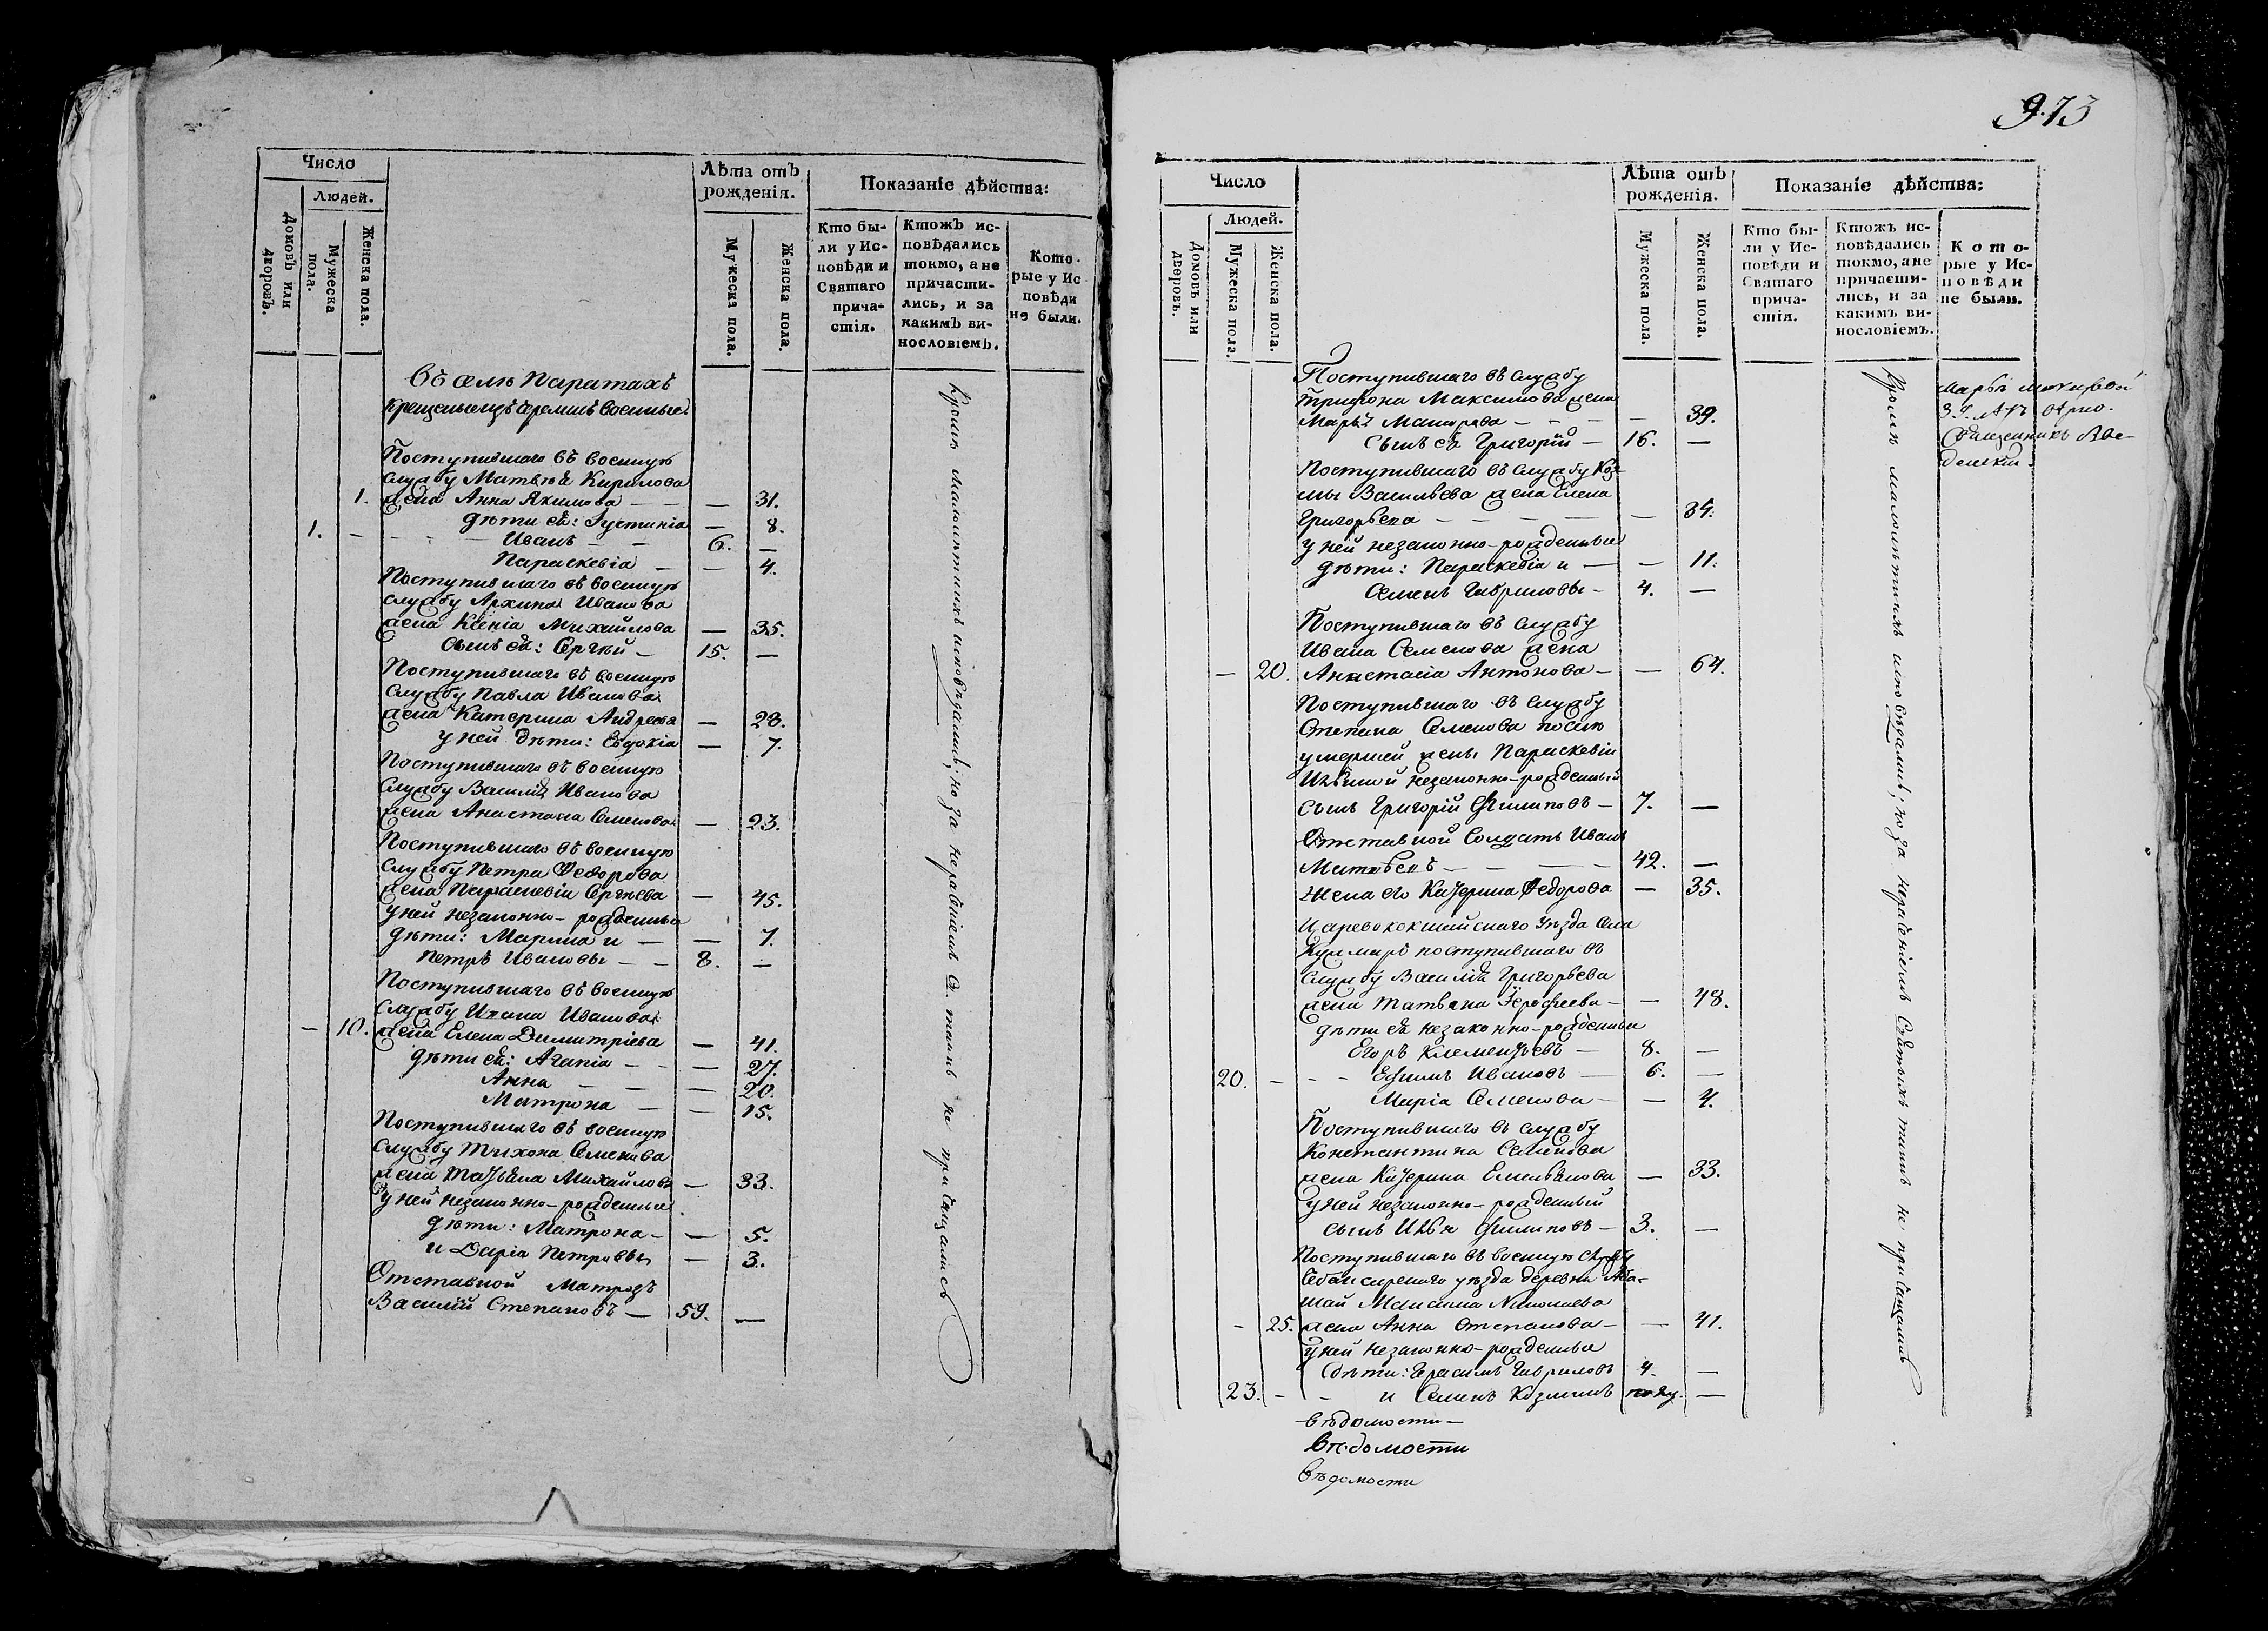 Число
Людей.
Домовъ или дворовъ.
Мужеска пола.
Женска пола.
Лѣта отъ рожденія.
Мужеска пола.
Женска пола.
Показаніе дѣйства:
Кто были у Исповѣди и Святаго причастія.
Ктожъ исповѣдались токмо, а не причастились, и за какимъ винословіемъ.
Которые у Исповѣди не были.
Въ селѣ Паратахъ
крещеныхъ черемисъ военные
Поступившаго въ военную
службу Матвѣя Кирилова
1. жена Анна Якимова — — 31.
дѣти её: Іустинія — 8.
1. - - - - Иванъ — 6. —
Параскевія — — 4.
Поступившаго въ военную
службу Архипа Иванова
жена Ксенія Михайлова — 35.
сынъ её: Сергѣй — 15. —
Поступившаго въ военную
службу Павла Иванова
жена Катерина Андреева — 28.
у ней дѣти: Евдокія — 7.
Поступившаго въ военную
службу Василія Иванова
жена Анастасія Семенова — 23.
Поступившаго въ военную
службу Петра Федорова
жена Параскевія Сергѣева — 45.
у ней незаконно-рожденные
дѣти: Марина и — — 7.
Петръ Ивановы — — 8. —
Поступившаго въ военную
службу Ивана Иванова
- 10. жена Елена Димитріева — 41.
дѣти её: Агапія — — — 27.
Анна — — — 20.
Матрона — — 15.
Поступившаго въ военную
службу Тихона Семенова
жена Татьяна Михайлова — 33.
у ней незаконно-рожденные
дѣти: Матрона — — 5.
и Дарія Петровы — 3.
Отставной Матрозъ
Василій Степановъ — 59. —
Кромѣ малолѣтнихъ исповѣдались, но за нерадѣніемъ С. таинъ не причащались
973
Число
Людей.
Домовъ или дворовъ.
Мужеска пола.
Женска пола.
Лѣта отъ рожденія.
Мужеска пола.
Женска пола.
Показаніе дѣйства:
Кто были у Исповѣди и Святаго причастія.
Ктожъ исповѣдались токмо, а не причастились, и за какимъ винословіемъ.
Которые у Исповѣди не были.
Поступившаго въ службу
Трифона Максимова жена
Марья — — — 39.
сынъ её Григорій — 16. —
Поступившаго въ службу Коз-
мы Васильева жена Елена
Григорьева — — — — 34.
у ней незаконно-рожденные
дѣти: Параскевія и — — 11.
Семенъ Гавриловы — 4. —
Поступившаго въ службу
Ивана Семенова жена
- 20. Анастасія Антонова — — 64.
Поступившаго въ службу
Степана Семенова послѣ
умершей жены Параскевіи
незаконно-рожденный
сынъ Григорій Филиповъ — 7. —
Отставной Солдатъ Иванъ
Матвѣевъ — — — 42. —
Жена его Катерина Федорова — 35.
Царевококшайскаго уѣзда села
Кулмаръ поступившаго въ
службу Василія Григорьева
жена Татьяна Ерофеева — — 48.
дѣти её незаконно-рожденные
Егоръ Клементьевъ — 8. —
20. - - - Ефимъ Ивановъ — 6. —
Марія Семенова — — 4.
Поступившаго въ службу
Константина Семенова
жена Катерина Емельянова — 33.
у ней незаконно-рожденный
сынъ Илья Филиповъ — 3. —
Поступившаго въ военную службу
Чебоксарскаго уѣзда деревни Аба-
шай Максима Николаева
- 25. жена Анна Степанова — — 41.
у ней незаконно-рожденные
дѣти: Герасимъ Гавриловъ 4. —
23. - - и Семенъ Козминъ полу. —
вѣдомости —
вѣдомости
вѣдомости
Кромѣ малолѣтнихъ исповѣдались, но за нерадѣніемъ Святыхъ таинъ не причащались
Священникъ Вве-
денскій.